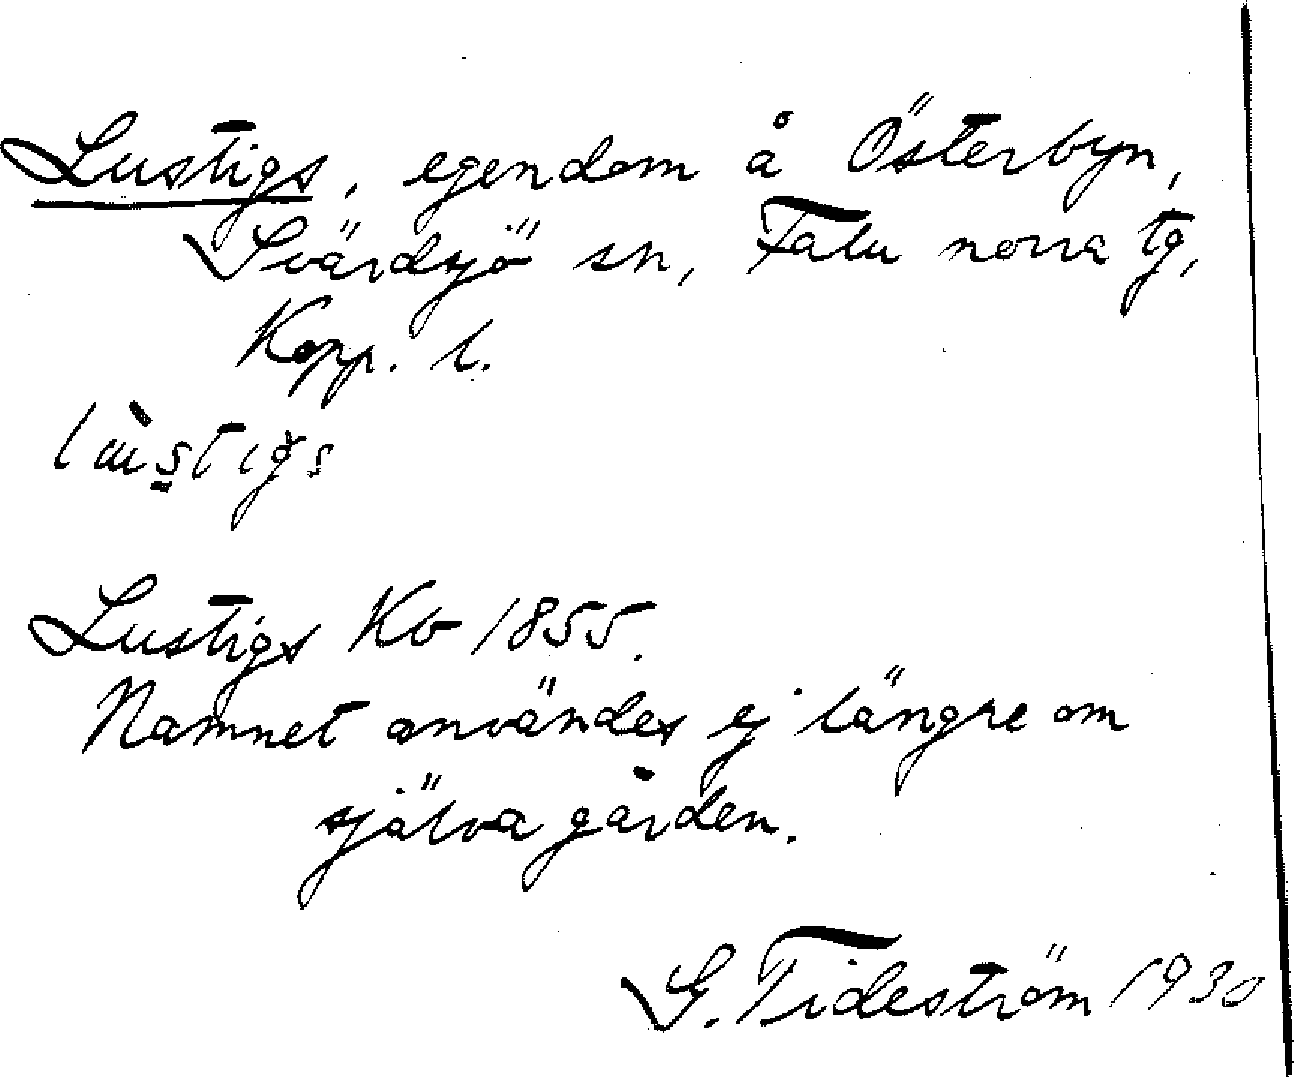 Lustigs, egendom å Österbyn,
Svärdsjö sn, Falu norra tg,
Kopp. l.
Lustigs Kb 1855.
Namnet användes ej längre om
själva gården.
G. Tideström 1930